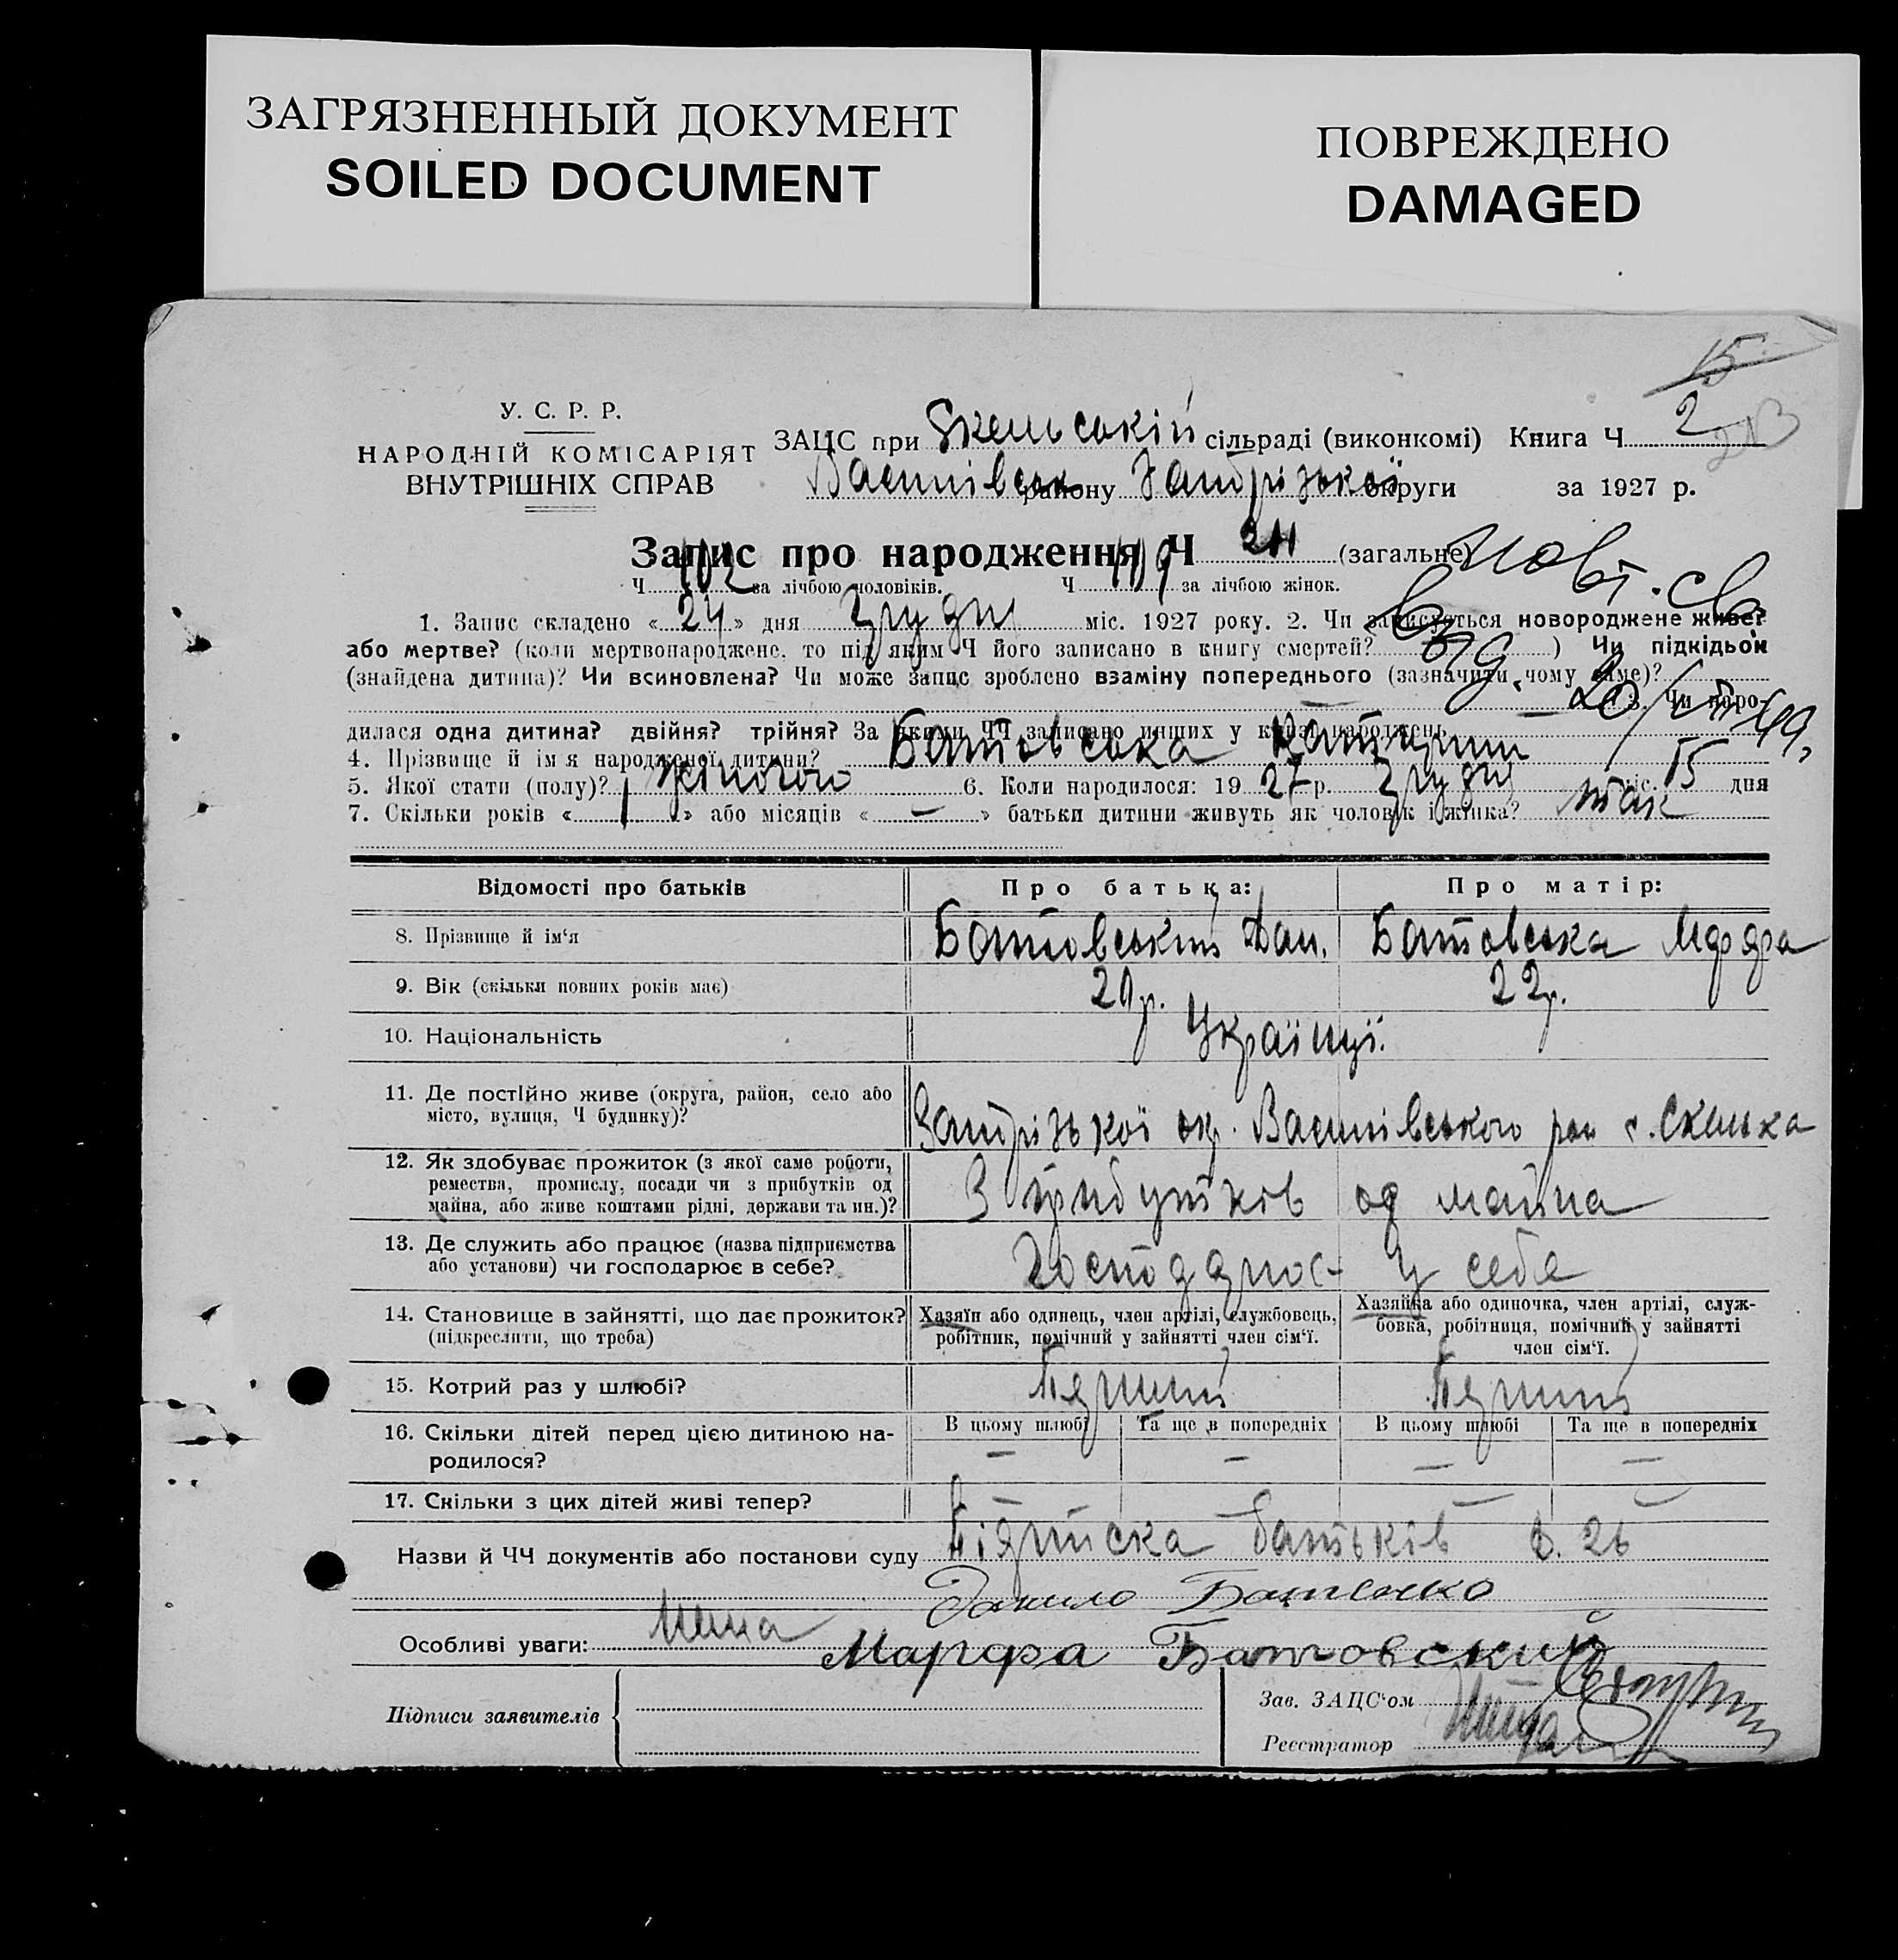 ЗАГРЯЗНЕННЫЙ ДОКУМЕНТ
SOILED DOCUMENT
ПОВРЕЖДЕНО
DAMAGED
15
У. С. Р. Р.
НАРОДНІЙ КОМІСАРІЯТ
ВНУТРІШНІХ СПРАВ
ЗАЦС при Скельській сільраді (виконкомі) Книга Ч 2
району округи за 1927 р.
Запис про народження Ч (загальне)
Ч за лічбою чоловіків. Ч за лічбою жінок.
1. Запис складено « 24 » дня Грудня міс. 1927 року. 2. Чи записується новороджене живе?
або мертве? (коли мертвонароджене, то під яким Ч його записано в книгу смертей? ) Чи підкідьок
(знайдена дитина)? Чи всиновлена? Чи може запис зроблено взаміну попереднього (зазначити, чому саме)?
3. Чи наро-
дилася одна дитина? двійня? трійня? За якими ЧЧ записано инших у книзі народжень
4. Прізвище й ім'я народженої дитини? Батовська Катерина
5. Якої стати (полу)? жіночою 6. Коли народилося: 19 27 р. Грудня міс. 15 дня
7. Скільки років « 1 » або місяців « — » батьки дитини живуть як чоловік і жінка? так
Відомості про батьків
Про батька:
Про матір:
8. Прізвище й ім'я Батовський Дан. Батовська Марфа
9. Вік (скільки повних років має) 20 р. 22 р.
10. Національність Українці.
11. Де постійно живе (округа, район, село або
місто, вулиця, Ч будинку)?
Запорізької окр. Василівського рай с. Скелька
12. Як здобуває прожиток (з якої саме роботи,
ремества, промислу, посади чи з прибутків од
майна, або живе коштами рідні, держави та ин.)?
З прибутків од майна
13. Де служить або працює (назва підприємства
або установи) чи господарює в себе?
у себе
14. Становище в зайнятті, що дає прожиток?
(підкреслити, що треба)
Хазяїн або одинець, член артілі, службовець,
робітник, помічний у зайнятті член сім'ї.
Хазяйка або одиночка, член артілі, служ-
бовка, робітниця, помічний у зайнятті
член сім'ї.
15. Котрий раз у шлюбі? Перший Перший
16. Скільки дітей перед цією дитиною на-
родилося?
В цьому шлюбі Та ще в попередніх В цьому шлюбі Та ще в попередніх
— — — —
17. Скільки з цих дітей живі тепер? — — —
Назви й ЧЧ документів або постанови суду Підписка батьків
Данило Батенко
Особливі уваги: Нема
Марфа Батовский
Підписи заявителів
Зав. ЗАЦС'ом
Реєстратор